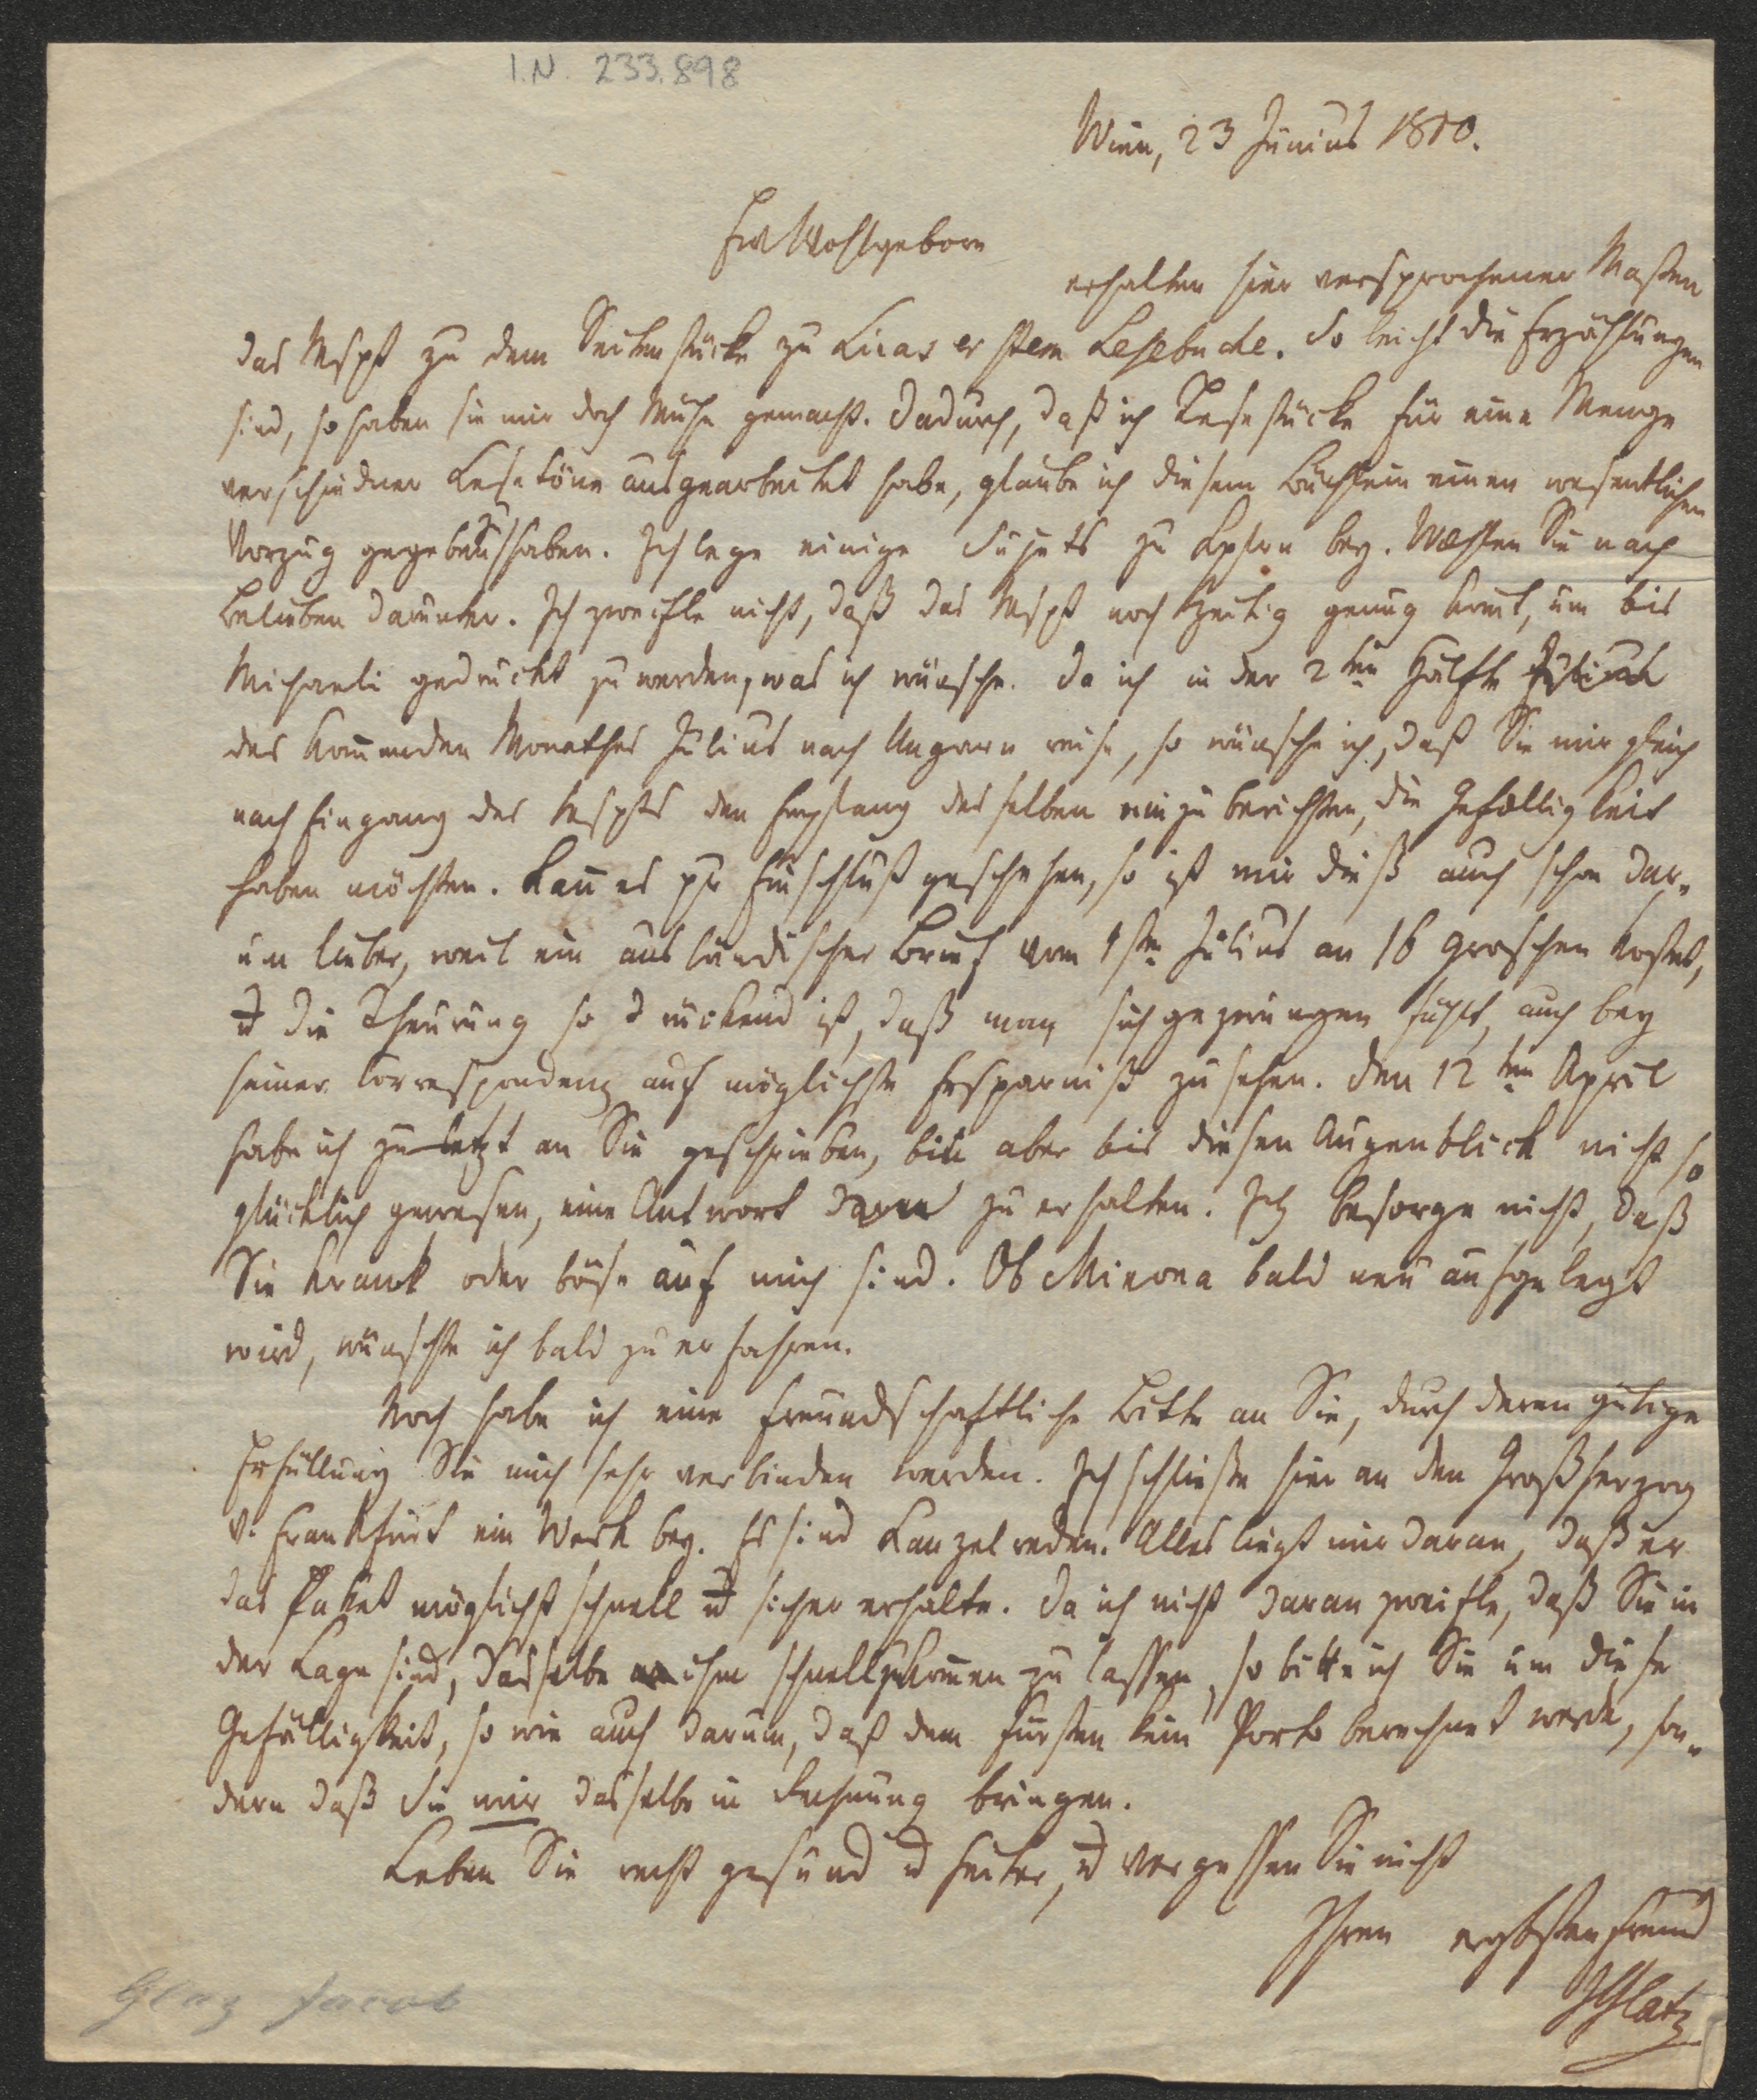 I.N. 233.898
Wien, 23 Junius 1810.
Ew Wohlgeborn
erhalten hier versprochener Maßen
das Mspt zu dem Seitenstücke zu Linas erstem Lesebuche. So leicht die Erzählungen
sind, so haben sie mir doch Mühe gemacht. Dadurch, daß ich Lesestücke für eine Menge
verschiedner Lesetöne ausgearbeitet habe, glaube ich diesem Büchlein einen wesentlichen
Vorzug gegeben zu haben. Ich lege einige Sujets zu Kpfrn bey. Wählen Sie nach
Belieben darunter. Ich zweifle nicht, daß das Mspt noch zeitig genug kom̅t, um bis
Michaeli gedruckt zu werden, was ich wünsche. Da ich in der 2ten Hälfte
des kom̅enden Monathes Julius nach Ungarn reise, so wünsche ich, daß Sie mir gleich
nach Eingang des Mspts den Empfang desselben einzuberichten, die Gefälligkeit
haben möchten. Kan̅ es pr Einschluß geschehen, so ist mir dieß auch schon dar-
um lieber, weil ein ausländischer Brief vom 1sten Julius an 16 Groschen kostet,
u die Theurung so drückend ist, daß man sich gezwungen fühlt, auch bey
seiner Correspondenz auf möglichste Ersparniß zu sehen. Den 12ten April
habe ich zuletzt an Sie geschrieben, bin aber bis diesen Augenblick nicht so
glücklich gewesen, eine Antwort zu erhalten. Ich besorge nicht, daß
Sie krank oder böse auf mich sind. Ob Minona bald neu aufgelegt
wird, wünschte ich bald zu erfahren.
Noch habe ich eine freundschaftliche Bitte an Sie, durch deren gütige
Erfüllung Sie mich sehr verbinden werden. Ich schließe hier an den Großherzog
v. Frankfurt ein Werk bey. Es sind Kanzelreden. Alles liegt mir daran, daß er
das Paket möglichst schnell u sicher erhalte. Da ich nicht daran zweifle, daß Sie in
der Lage sind, dasselbe ihm schnell zukom̅en zu lassen, so bitte ich Sie um diese
Gefälligkeit, so wie auch darum, daß dem Fürsten kein Porto berechnet werde, son-
dern daß Sie mir dasselbe in Rechnung bringen.
Leben Sie recht gesund u heiter, u vergessen Sie nicht
Ihren ergbsten Freund
JGlatz
Glaz Jacob